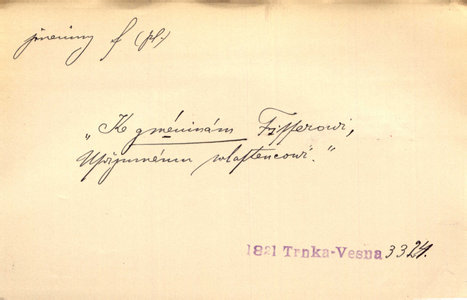 jmeniny f (pl.)
„K gméninám Fifferowi,
Upřjmnému wlastencowi."
1821 Trnka-Vesna 3324.